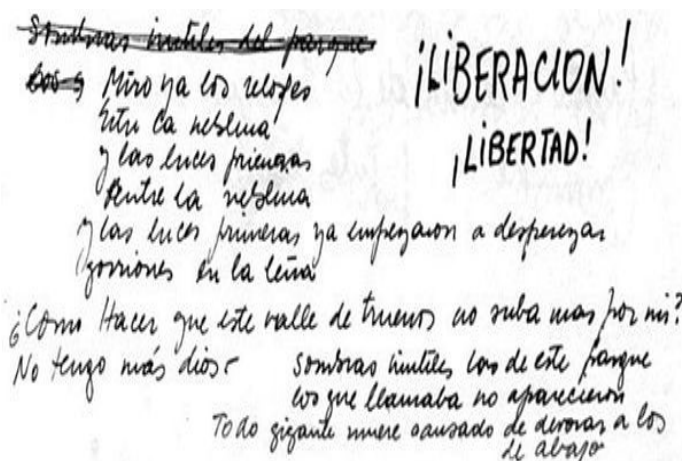 Sombras inutiles del parque
los
Miro ya los relojes
Entre la neblina
y las luces primeras
Dentre la neblina
y las luces primeras ya empezaron a desperezar
gorriones en la leña
¡LIBERACION!
¡LIBERTAD!
¿Como Hacer que este valle de truenos no suba mas por mi?
No tengo más dios
Sombras inutiles las de este parque
los que llamaba no aparecieron
Todo gigante muere cansado de devorar a los
de abajo